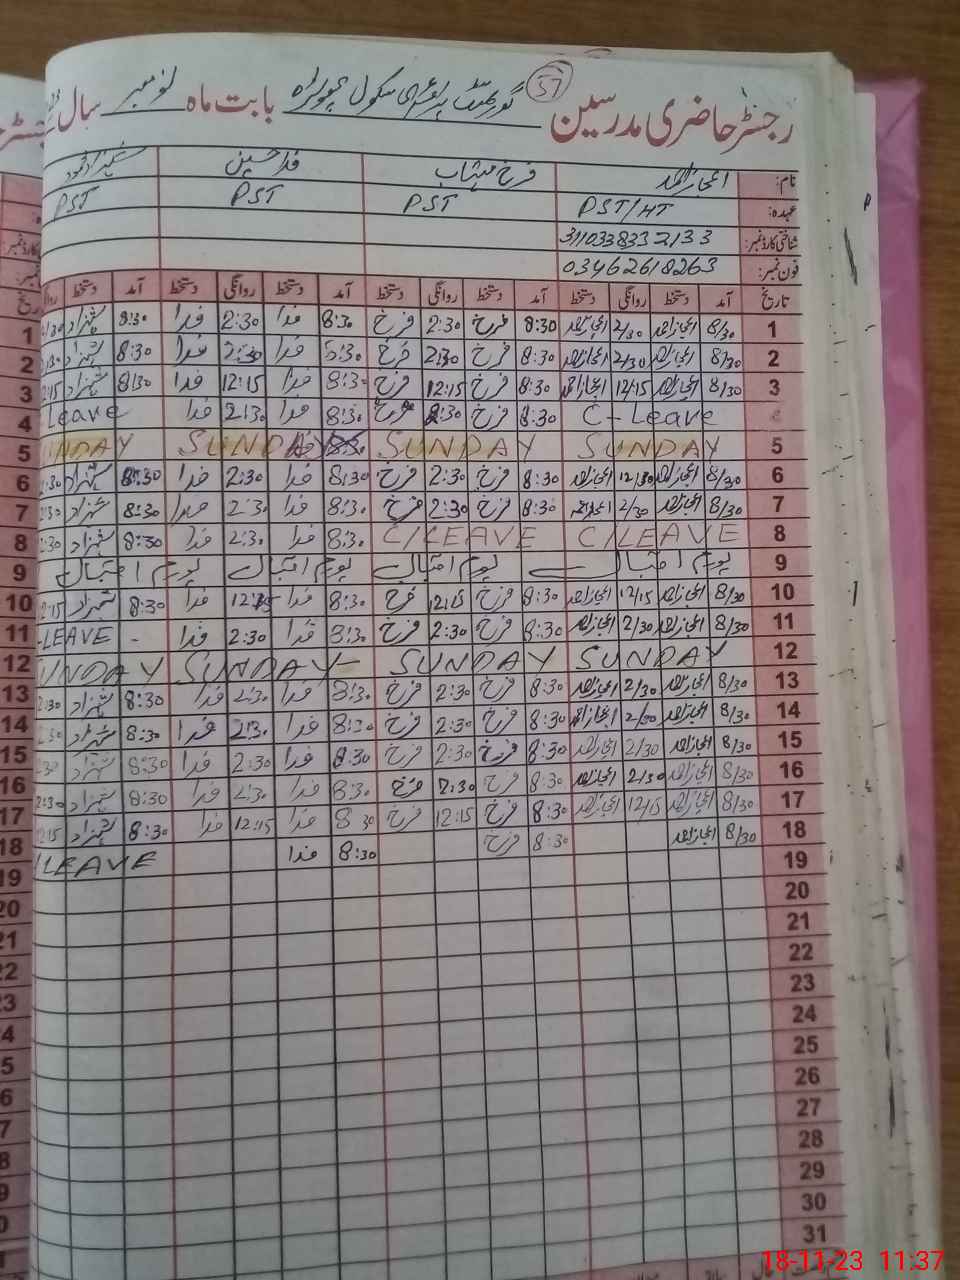 57
رجسٹر حاضری مدرسین گورنمنٹ پرائمری سکول بابت ماہ نومبر سال
نام: اعجاز احمد فرخ مہتاب فدا حسین شہزاد محمود
عہدہ: PST/HT PST PST PST
شناختی کارڈ نمبر: 3110338332133
فون نمبر: 03462618263
تاریخ آمد دستخط روانگی دستخط آمد دستخط روانگی دستخط آمد دستخط روانگی دستخط آمد دستخط
1 8/30 اعجاز احمد 2/30 اعجاز احمد 8:30 فرخ 2:30 فرخ 8:30 فدا 2:30 فدا 8:30 شہزاد
2 8/30 اعجاز احمد 2/30 اعجاز احمد 8:30 فرخ 2:30 فرخ 8:30 فدا 2:30 فدا 8:30 شہزاد
3 8/30 اعجاز احمد 12/15 اعجاز احمد 8:30 فرخ 12:15 فرخ 8:30 فدا 12:15 فدا 8:30 شہزاد
4 C-Leave 8:30 فرخ 2:30 فرخ 8:30 فدا 2:30 فدا Leave
5 SUNDAY SUNDAY SUNDAY UNDAY
6 8/30 اعجاز احمد 12/30 اعجاز احمد 8:30 فرخ 2:30 فرخ 8:30 فدا 2:30 فدا 8:30 شہزاد
7 8/30 اعجاز احمد 2/30 اعجاز احمد 8:30 فرخ 2:30 فرخ 8:30 فدا 2:30 فدا 8:30 شہزاد
8 C/LEAVE C/LEAVE 8:30 فدا 2:30 فدا 8:30 شہزاد
9 یوم اقبال یوم اقبال یوم اقبال یوم اقبال
10 8/30 اعجاز احمد 12/15 اعجاز احمد 8:30 فرخ 12:15 فرخ 8:30 فدا 12:15 فدا 8:30 شہزاد
11 8/30 اعجاز احمد 2/30 اعجاز احمد 8:30 فرخ 2:30 فرخ 8:30 فدا 2:30 فدا -LEAVE -
12 SUNDAY SUNDAY SUNDAY UNDAY
13 8/30 اعجاز احمد 2/30 اعجاز احمد 8:30 فرخ 2:30 فرخ 8:30 فدا 2:30 فدا 8:30 شہزاد
14 8/30 اعجاز احمد 2/30 اعجاز احمد 8:30 فرخ 2:30 فرخ 8:30 فدا 2:30 فدا 8:30 شہزاد
15 8/30 اعجاز احمد 2/30 اعجاز احمد 8:30 فرخ 2:30 فرخ 8:30 فدا 2:30 فدا 8:30 شہزاد
16 8/30 اعجاز احمد 2/30 اعجاز احمد 8:30 فرخ 2:30 فرخ 8:30 فدا 2:30 فدا 8:30 شہزاد
17 8/30 اعجاز احمد 12/15 اعجاز احمد 8:30 فرخ 12:15 فرخ 8:30 فدا 12:15 فدا 8:30 شہزاد
18 8/30 اعجاز احمد 8:30 فرخ 8:30 فدا LEAVE
19
20
21
22
23
24
25
26
27
28
29
30
31
18-11-23 11:37